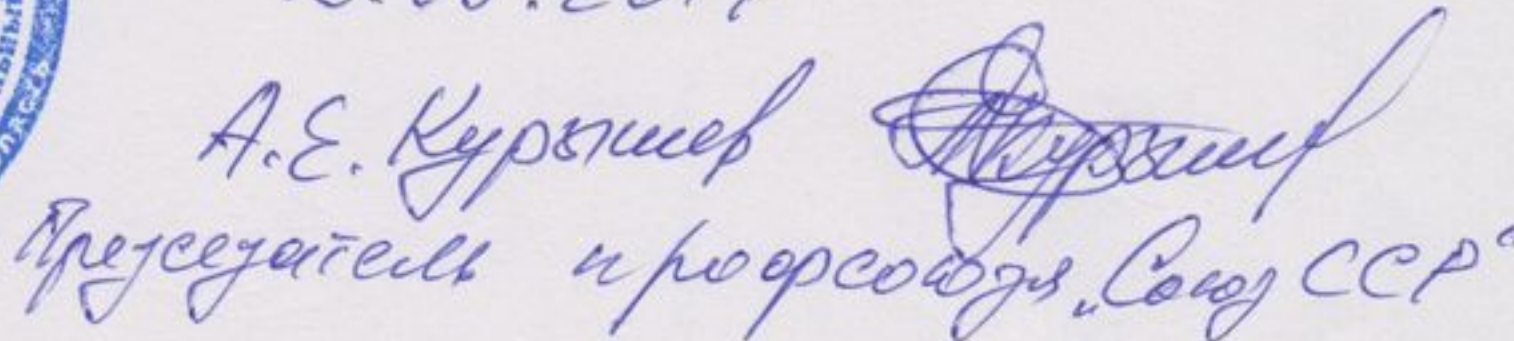 А.Е. Курышев
Председатель профсоюза „Союз ССР“